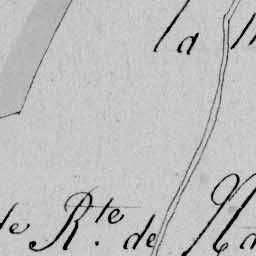 la
de R.te de